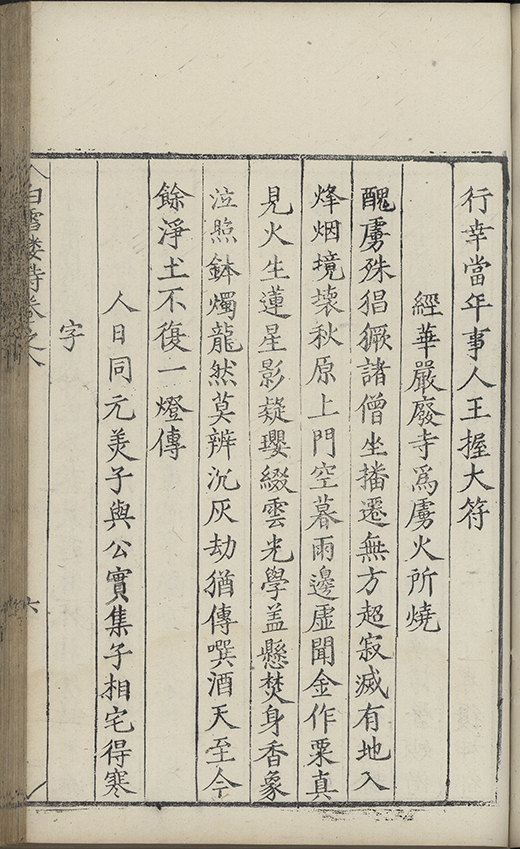 行幸當年事人王握大符
經華嚴廢寺爲虜火所燒
醜虜殊猖獗諸僧坐播遷無方超寂滅有地入
烽烟境壊秋原上門空暮雨邊虛聞金作粟真
見火生蓮星影疑瓔綴雲光學盖懸焚身香象
泣照鉢燭龍然莫辨沉灰劫猶傳噀酒天至今
餘淨土不復一燈傳
人日同元美子與公實集子相宅得寒
字
白雪樓詩卷之八
六